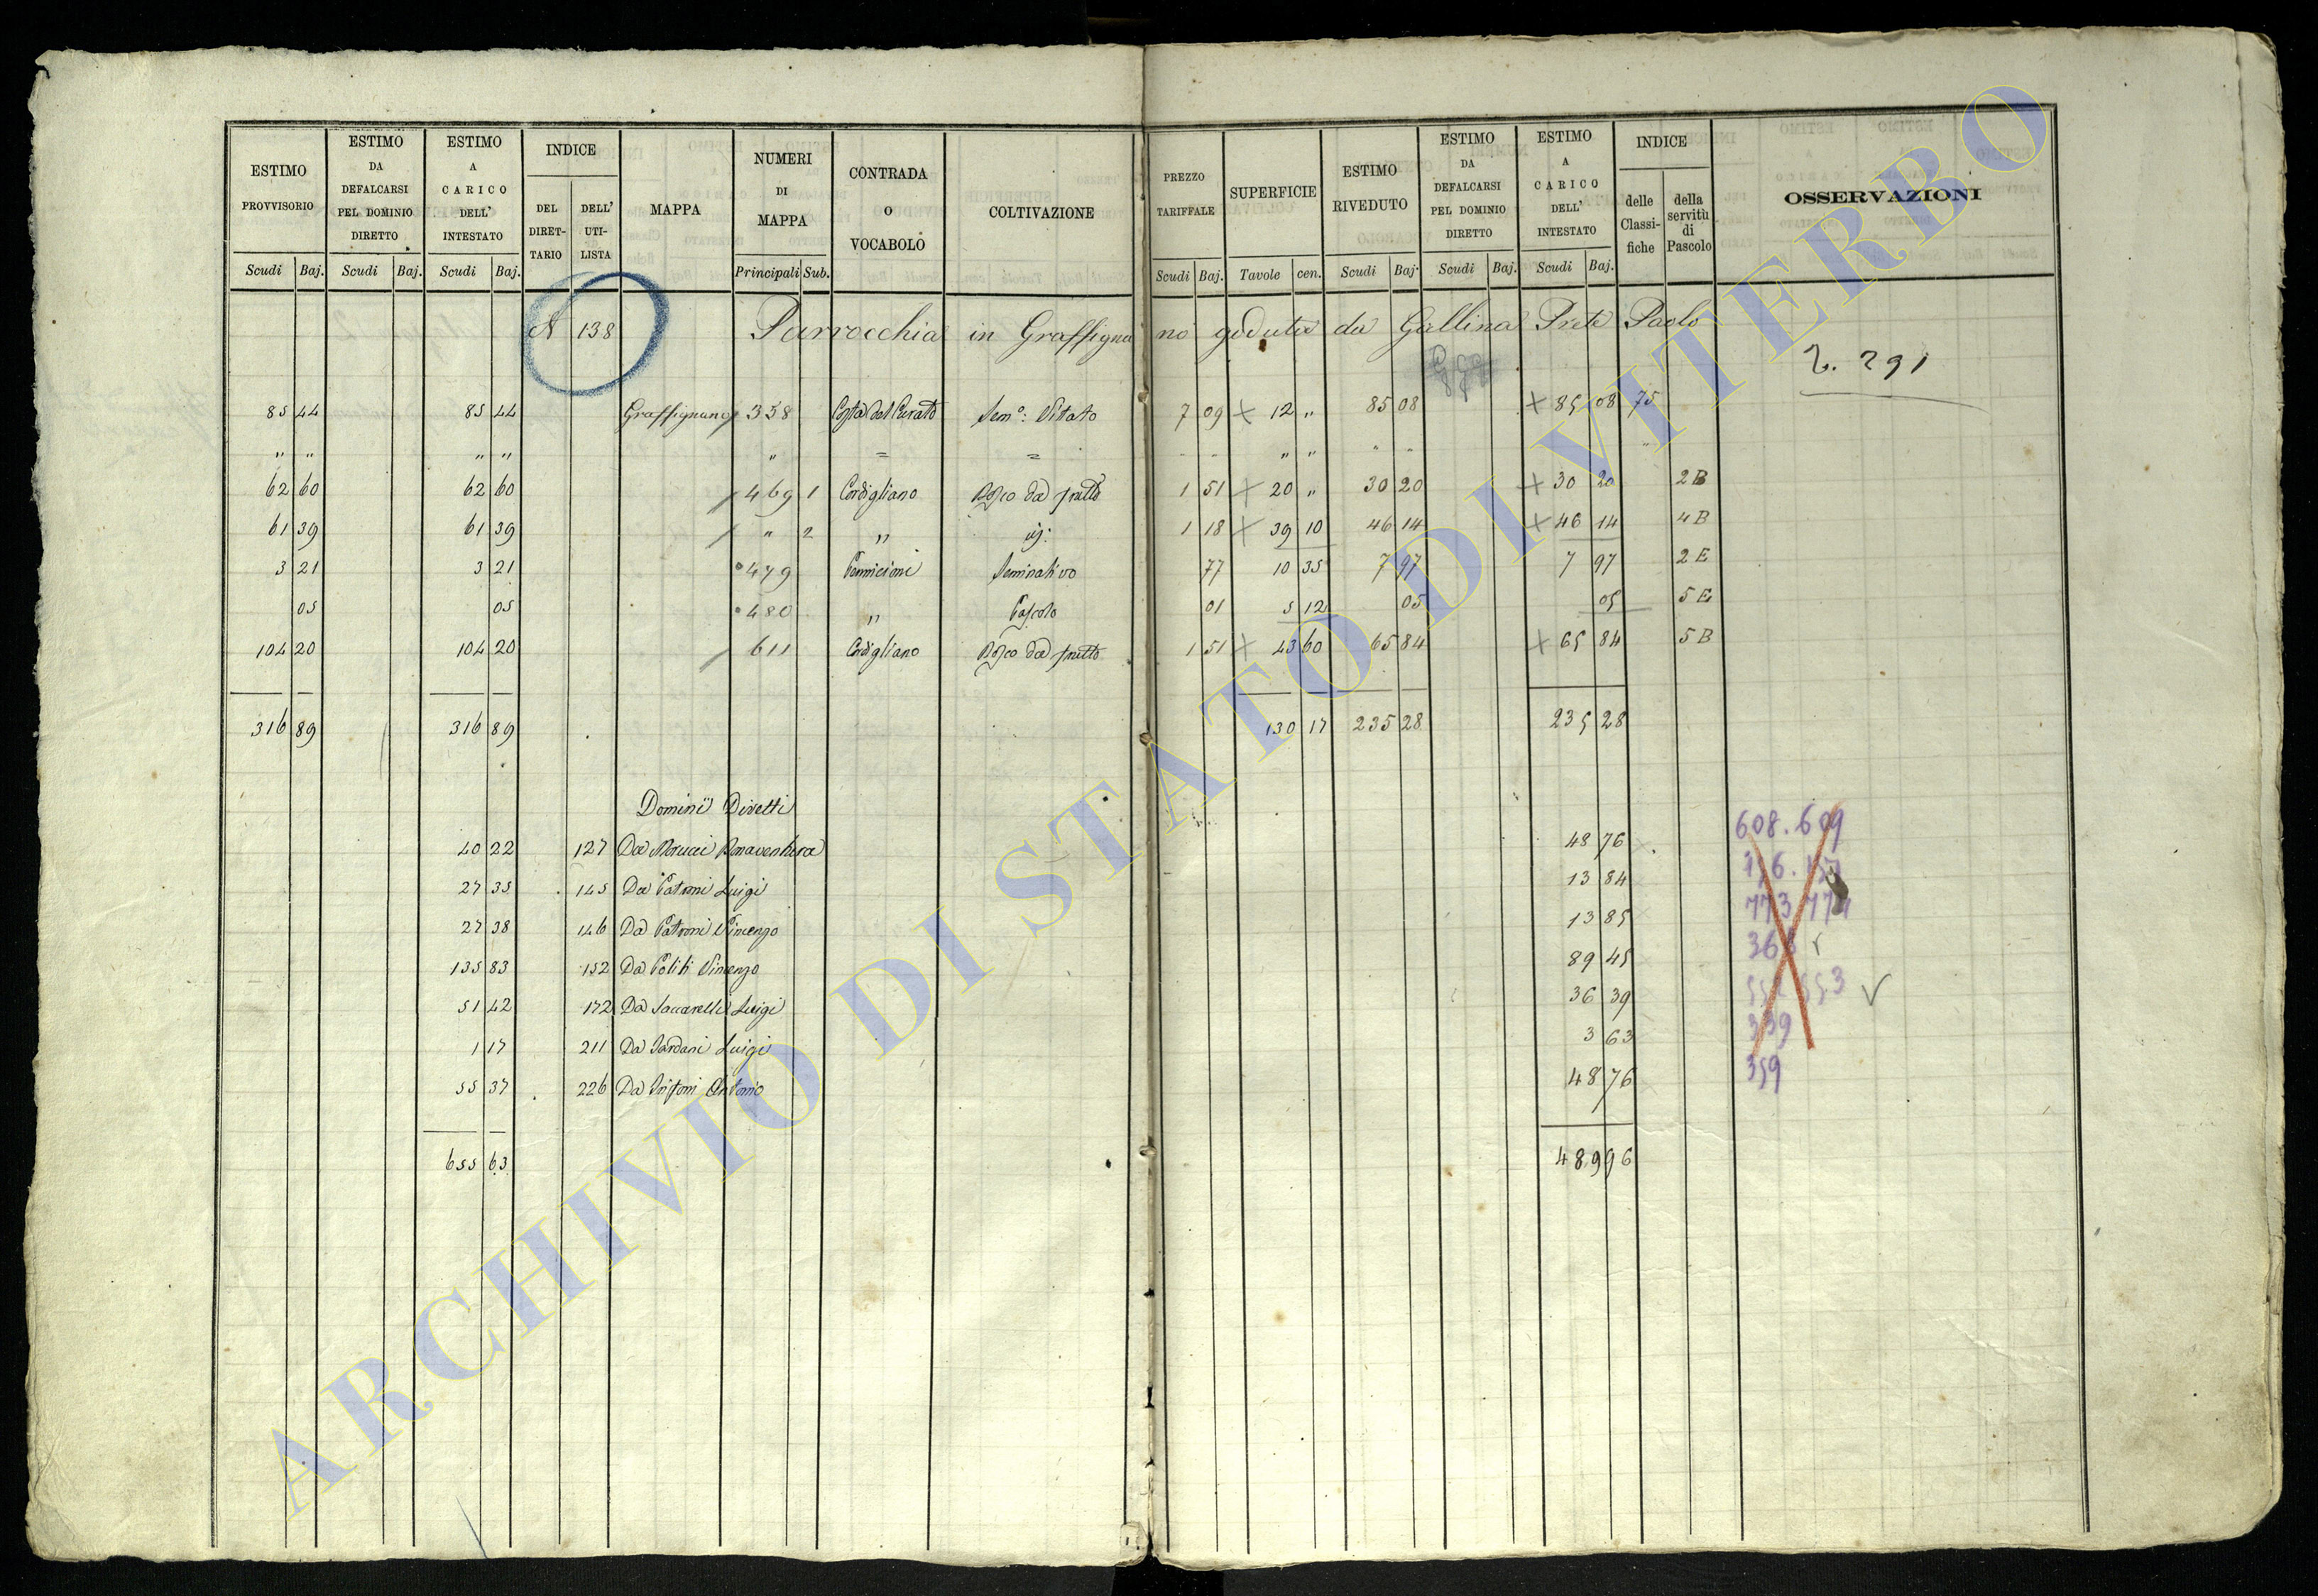 ESTIMO PROVVISORIO | ESTIMO DA DEFALCARSI PEL DOMINIO DIRETTO | ESTIMO A CARICO DELL' INTESTATO | INDICE | MAPPA | NUMERI DI MAPPA | CONTRADA O VOCABOLO | COLTIVAZIONE | PREZZO TARIFFALE | SUPERFICIE | ESTIMO RIVEDUTO | ESTIMO DA DEFALCARSI PEL DOMINIO DIRETTO | ESTIMO A CARICO DELL' INTESTATO | INDICE | OSSERVAZIONI
DEL DIRETTARIO | DELL' UTILISTA | delle Classifiche | della servitù di Pascolo
Scudi | Baj. | Scudi | Baj. | Scudi | Baj. | Principali | Sub. | Scudi | Baj. | Tavole | cen. | Scudi | Baj. | Scudi | Baj. | Scudi | Baj.
A 138 Parrocchia in Graffignano goduta da Gallina Prete Paolo
2. 291
85 44 | 85 44 | Graffignano | 338 | Costa del Curato | Sem°: Vitato | 7 09 | + 12 " | 85 08 | + 85 08 | 75
" " | " " | " | = | = | " " | " " | " "
62 60 | 62 60 | 469 1 | Cordigliano | Bosco da frutto | 1 51 | + 20 " | 30 20 | + 30 20 | 2 B
61 39 | 61 39 | " 2 | " | 1 18 | + 39 10 | 46 14 | + 46 14 | 4 B
3 21 | 3 21 | 479 | Seminativo | 77 | 10 35 | 7 97 | 7 97 | 2 E
05 | 05 | 480 | " | Pascolo | 01 | 5 12 | 05 | 05 | 5 E
104 20 | 104 20 | 611 | Cordigliano | Bosco da frutto | 1 51 | + 43 60 | 65 84 | + 65 84 | 5 B
316 89 | 316 89 | 130 17 | 235 28 | 235 28
Dominii Diretti
40 22 | 127 | Da Morucci Bonaventura | 48 76 | 608. 609
27 35 | 145 | Da Patroni Luigi | 13 84
27 38 | 146 | Da Patroni Vincenzo | 13 85 | 773 774
135 83 | 152 | Da Politi Vincenzo | 89 45
51 42 | 172 | Da Saccarelli Luigi | 36 39
1 17 | 211 | Da Tardani Luigi | 3 63 | 339
55 37 | 226 | Da Antonio | 48 76 | 359
655 63 | 489 96
ARCHIVIO DI STATO DI VITERBO